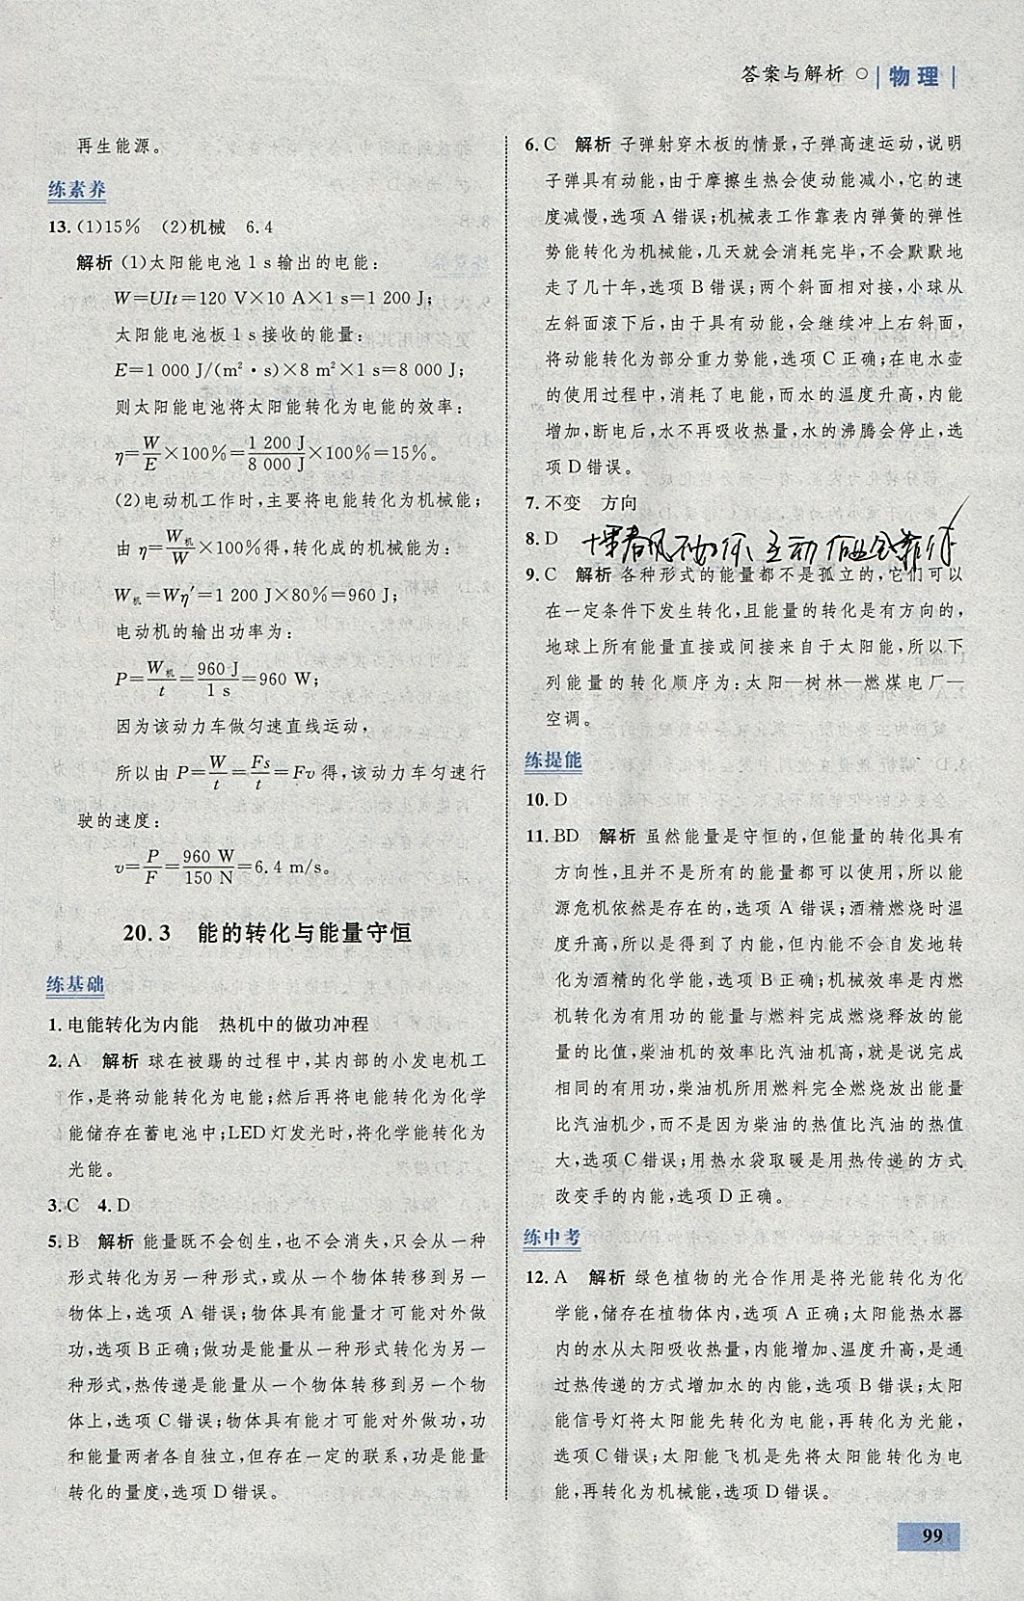 答案与解析 物理
再生能源。
练素养
13.(1)15% (2)机械 6.4
解析 (1)太阳能电池1 s输出的电能:
W=UIt=120 V×10 A×1 s=1 200 J;
太阳能电池板1 s接收的能量:
E=1 000 J/(m²·s)×8 m²×1 s=8 000 J;
则太阳能电池将太阳能转化为电能的效率:
η=W/E×100%=1 200 J/8 000 J×100%=15%。
(2)电动机工作时,主要将电能转化为机械能;
由η=W机/W×100%得,转化成的机械能为:
W机=Wη′=1 200 J×80%=960 J;
电动机的输出功率为:
P=W机/t=960 J/1 s=960 W;
因为该动力车做匀速直线运动,
所以由P=W/t=Fs/t=Fv得,该动力车匀速行
驶的速度:
v=P/F=960 W/150 N=6.4 m/s。
20.3 能的转化与能量守恒
练基础
1.电能转化为内能 热机中的做功冲程
2.A 解析 球在被踢的过程中,其内部的小发电机工
作,是将动能转化为电能;然后再将电能转化为化学
能储存在蓄电池中;LED灯发光时,将化学能转化为
光能。
3.C 4.D
5.B 解析 能量既不会创生,也不会消失,只会从一种
形式转化为另一种形式,或从一个物体转移到另一个
物体上,选项A错误;物体具有能量才可能对外做
功,选项B正确;做功是能量从一种形式转化为另一
种形式,热传递是能量从一个物体转移到另一个物
体上,选项C错误;物体具有能才可能对外做功,功
和能量两者各自独立,但存在一定的联系,功是能量
转化的量度,选项D错误。
6.C 解析 子弹射穿木板的情景,子弹高速运动,说明
子弹具有动能,由于摩擦生热会使动能减小,它的速
度减慢,选项A错误;机械表工作靠表内弹簧的弹性
势能转化为机械能,几天就会消耗完毕,不会默默地
走了几十年,选项B错误;两个斜面相对接,小球从
左斜面滚下后,由于具有动能,会继续冲上右斜面,
将动能转化为部分重力势能,选项C正确;在电水壶
的使用过程中,消耗了电能,而水的温度升高,内能
增加,断电后,水不再吸收热量,水的沸腾会停止,选
项D错误。
7.不变 方向
8.D
9.C 解析 各种形式的能量都不是孤立的,它们可以
在一定条件下发生转化,且能量的转化是有方向的,
地球上所有能量直接或间接来自于太阳能,所以下
列能量的转化顺序为:太阳—树林—燃煤电厂—
空调。
练提能
10.D
11.BD 解析 虽然能量是守恒的,但能量的转化具有
方向性,且并不是所有的能量都可以使用,所以能
源危机的存在是必然的,选项A错误;酒精燃烧时温
度升高,所以是得到了内能,但内能不会自发地转
化为酒精的化学能,选项B正确;机械效率是内燃
机转化为有用功的能量与燃料完成燃烧释放的能
量的比值,柴油机的效率比汽油机高,就是说完成
相同的有用功,柴油机所用燃料完全燃烧放出能量
比汽油机少,而不是因为柴油的热值比汽油的热值
大,选项C错误;用热水袋取暖是用热传递的方式
改变手的内能,选项D正确。
练中考
12.A 解析 绿色植物的光合作用是将光能转化为化
学能,储存在植物体内,选项A正确;太阳能热水器
内的水从太阳吸收热量,内能增加、温度升高,是通
过热传递的方式增加水的内能,选项B错误;太阳
能信号灯将太阳能先转化为电能,再转化为光能,
选项C错误;太阳能飞机是先将太阳能转化为电
能,再转化为机械能,选项D错误。
99